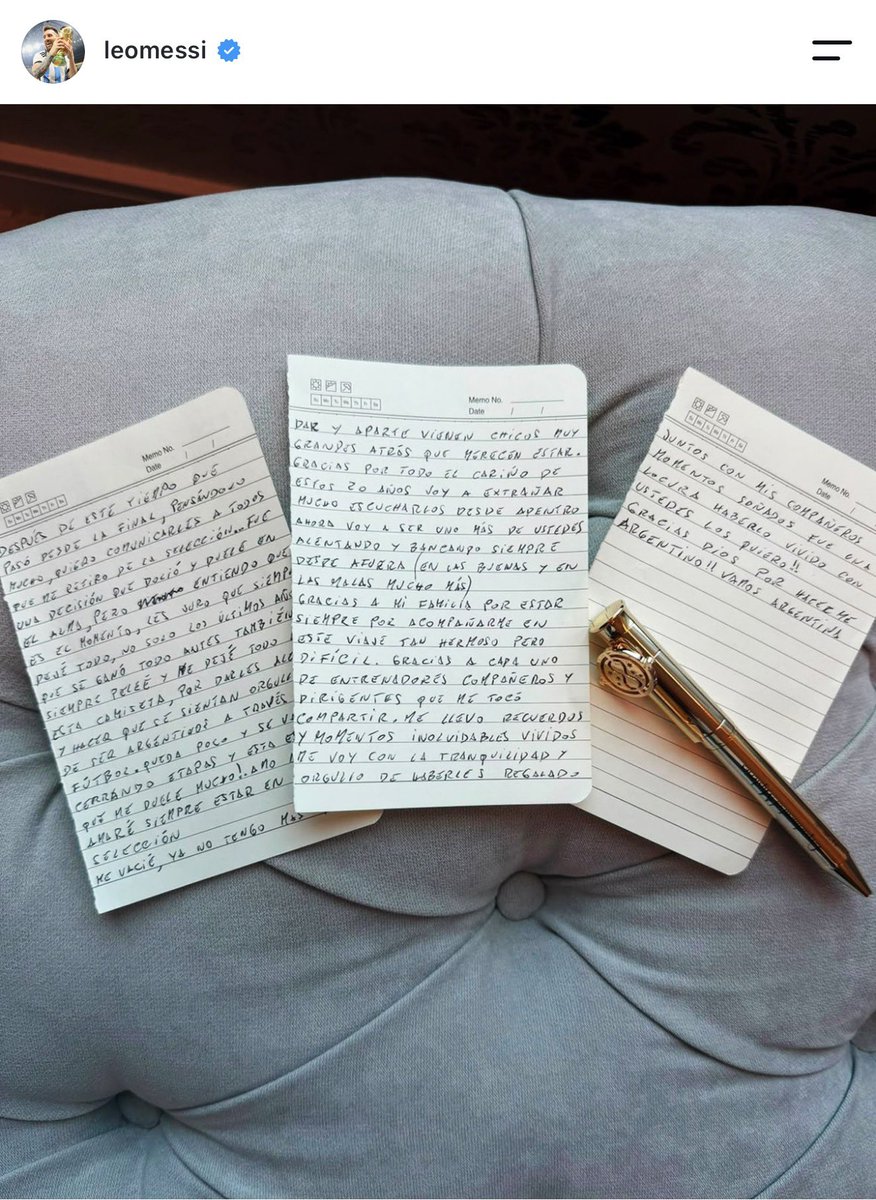 leomessi
Memo No.
Date / /
DESPUÉS DE ESTE TIEMPO QUE
PASÓ DESDE LA FINAL, PENSÁNDOLO
MUCHO, QUIERO COMUNICARLES A TODOS
QUE ME RETIRO DE LA SELECCIÓN. FUE
UNA DECISIÓN QUE DOLIÓ Y DUELE EN
EL ALMA, PERO ENTIENDO QUE
ES EL MOMENTO, LES JURO QUE SIEMPRE
DEJÉ TODO, NO SOLO LOS ÚLTIMOS AÑOS
QUE SE GANÓ TODO ANTES TAMBIÉN
SIEMPRE PELEÉ Y ME DEJÉ TODO
ESTA CAMISETA, POR DARLES
Y HACER QUE SE SIENTAN
DE SER ARGENTINOS A TRAVÉS
FÚTBOL. QUEDA POCO Y SE
CERRANDO ETAPAS Y ESTA
QUE ME DUELE MUCHO). AMO
AMARÉ SIEMPRE ESTAR EN
SELECCIÓN
ME VACIÉ, YA NO TENGO MÁS
Memo No.
Date / /
DAR Y APARTE VIENEN CHICOS MUY
GRANDES ATRÁS QUE MERECEN ESTAR.
GRACIAS POR TODO EL CARIÑO DE
ESTOS 20 AÑOS VOY A EXTRAÑAR
MUCHO ESCUCHARLOS DESDE ADENTRO
AHORA VOY A SER UNO MÁS DE USTEDES
ALENTANDO Y BANCANDO SIEMPRE
DESDE AFUERA (EN LAS BUENAS Y EN
LAS MALAS MUCHO MÁS)
GRACIAS A MI FAMILIA POR ESTAR
SIEMPRE POR ACOMPAÑARME EN
ESTE VIAJE TAN HERMOSO PERO
DIFÍCIL. GRACIAS A CADA UNO
DE ENTRENADORES COMPAÑEROS Y
DIRIGENTES QUE ME TOCÓ
COMPARTIR. ME LLEVO RECUERDOS
Y MOMENTOS INOLVIDABLES VIVIDOS
ME VOY CON LA TRANQUILIDAD Y
ORGULLO DE HABERLES REGALADO
Memo No.
Date /
JUNTOS CON MIS COMPAÑEROS
MOMENTOS SOÑADOS FUE UNA
LOCURA HABERLO VIVIDO CON
USTEDES LOS QUIERO!!
GRACIAS DIOS POR HACERME
ARGENTINO!! VAMOS ARGENTINA